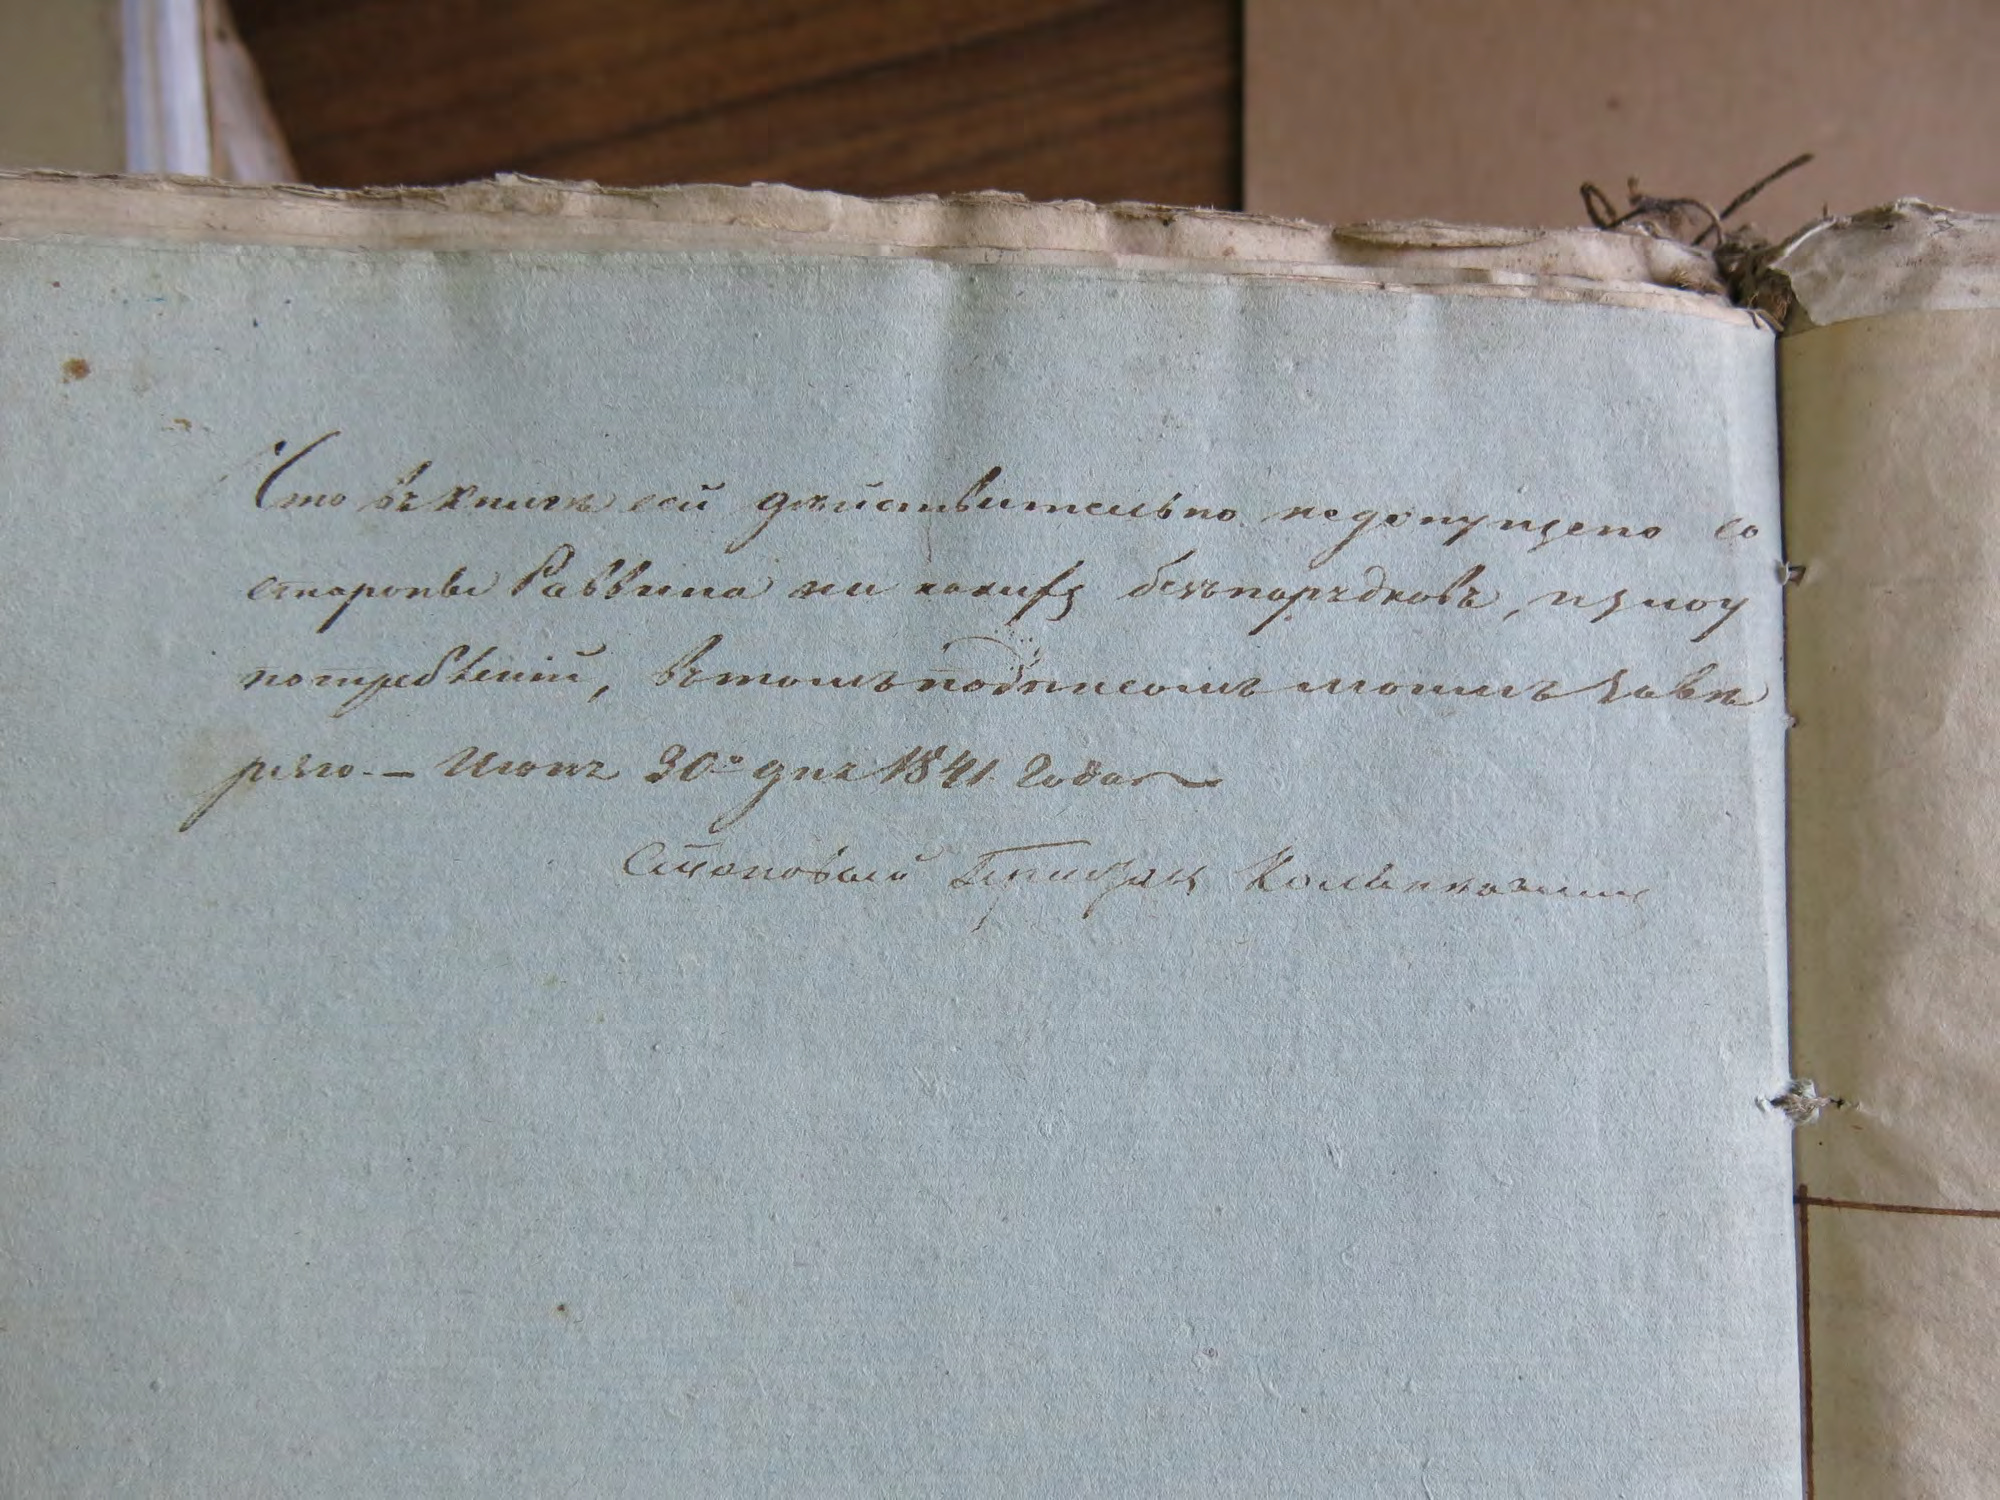 Что въ книгѣ сей дѣйствительно недопущено со
стороны Раввина ни какихъ безпорядковъ, и злоу
потребленій, въ томъ подписомъ моимъ завѣ
ряю. — Июня 30го дня 1841 года
Становый Приставъ